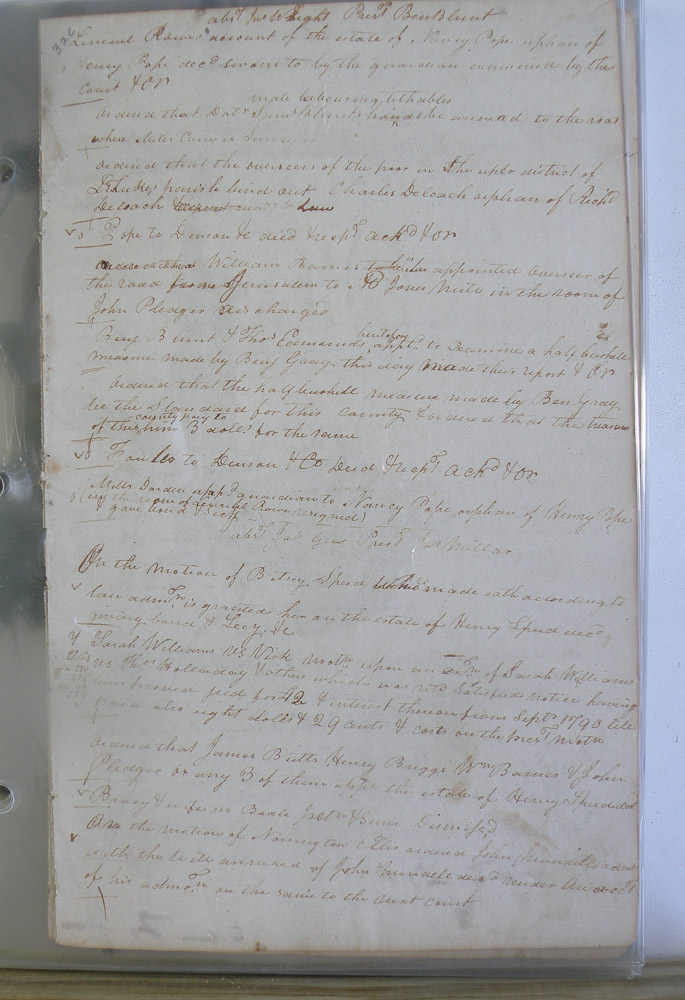 absT Jas Wright PresT Ben Blunt
326
Lemuel Rowes account of the estate of Nancy Pope orphan of
Henry Pope decd sworn to by the guardian examined by the
Court & Or
male labouring tithables
ordered that Blunts hands be annexed to the road
where Miles Cary is Surveyor
ordered that the overseers of the poor in the upper district of
St Lukes parish bind out Charles Deloach orphan of Richd
Deloach according to Law
Pope to Denson &c deed & recpT ackd & Or
William Barnes appointed overseer of
the road from Jerusalem to Jones Mill in the room of
John Pledger discharged
Benj Blunt & Thos Edmunds heretofore apptd to Examine a half bushell
measure made by Benj Gray this day made their report & Or
ordered that the half bushell measure made by Ben Gray
be the Standard for this County & ordered that the treasurer
of the County pay to him 3 dolls for the same
Fowler to Denson & Co Deed & recpT ackd & Or
Mills Darden appd guardian to Nancy Pope orphan of Henry Pope
(in the room of Lemuel Rowe resigned)
& gave bond & Secy
absT Jas Gee PresT Jos Millar
On the motion of Betsey Speed who made oath according to
law admTn is granted her on the estate of Henry Speed decd
giving bond & Secy &c
Sarah Williams vs Vick motn upon an ExTn of Sarah Williams
vs Thos Holladay & others which was retd Satisfied notice having
been proved Jud for & interest thereon from SepTr 1790 till
paid also eight dolls & 29 cents & costs on the PresT motn
ordered that James Butts Henry Briggs Wm Barnes & John
Pledger or any 3 of them appr the estate of Henry Speed decd
Bracy & wife vs Beale Dismissd
On the motion of Ellis ordered John admr
with the will annexed of John decd render an accoT
of his admTn on the same to the next court